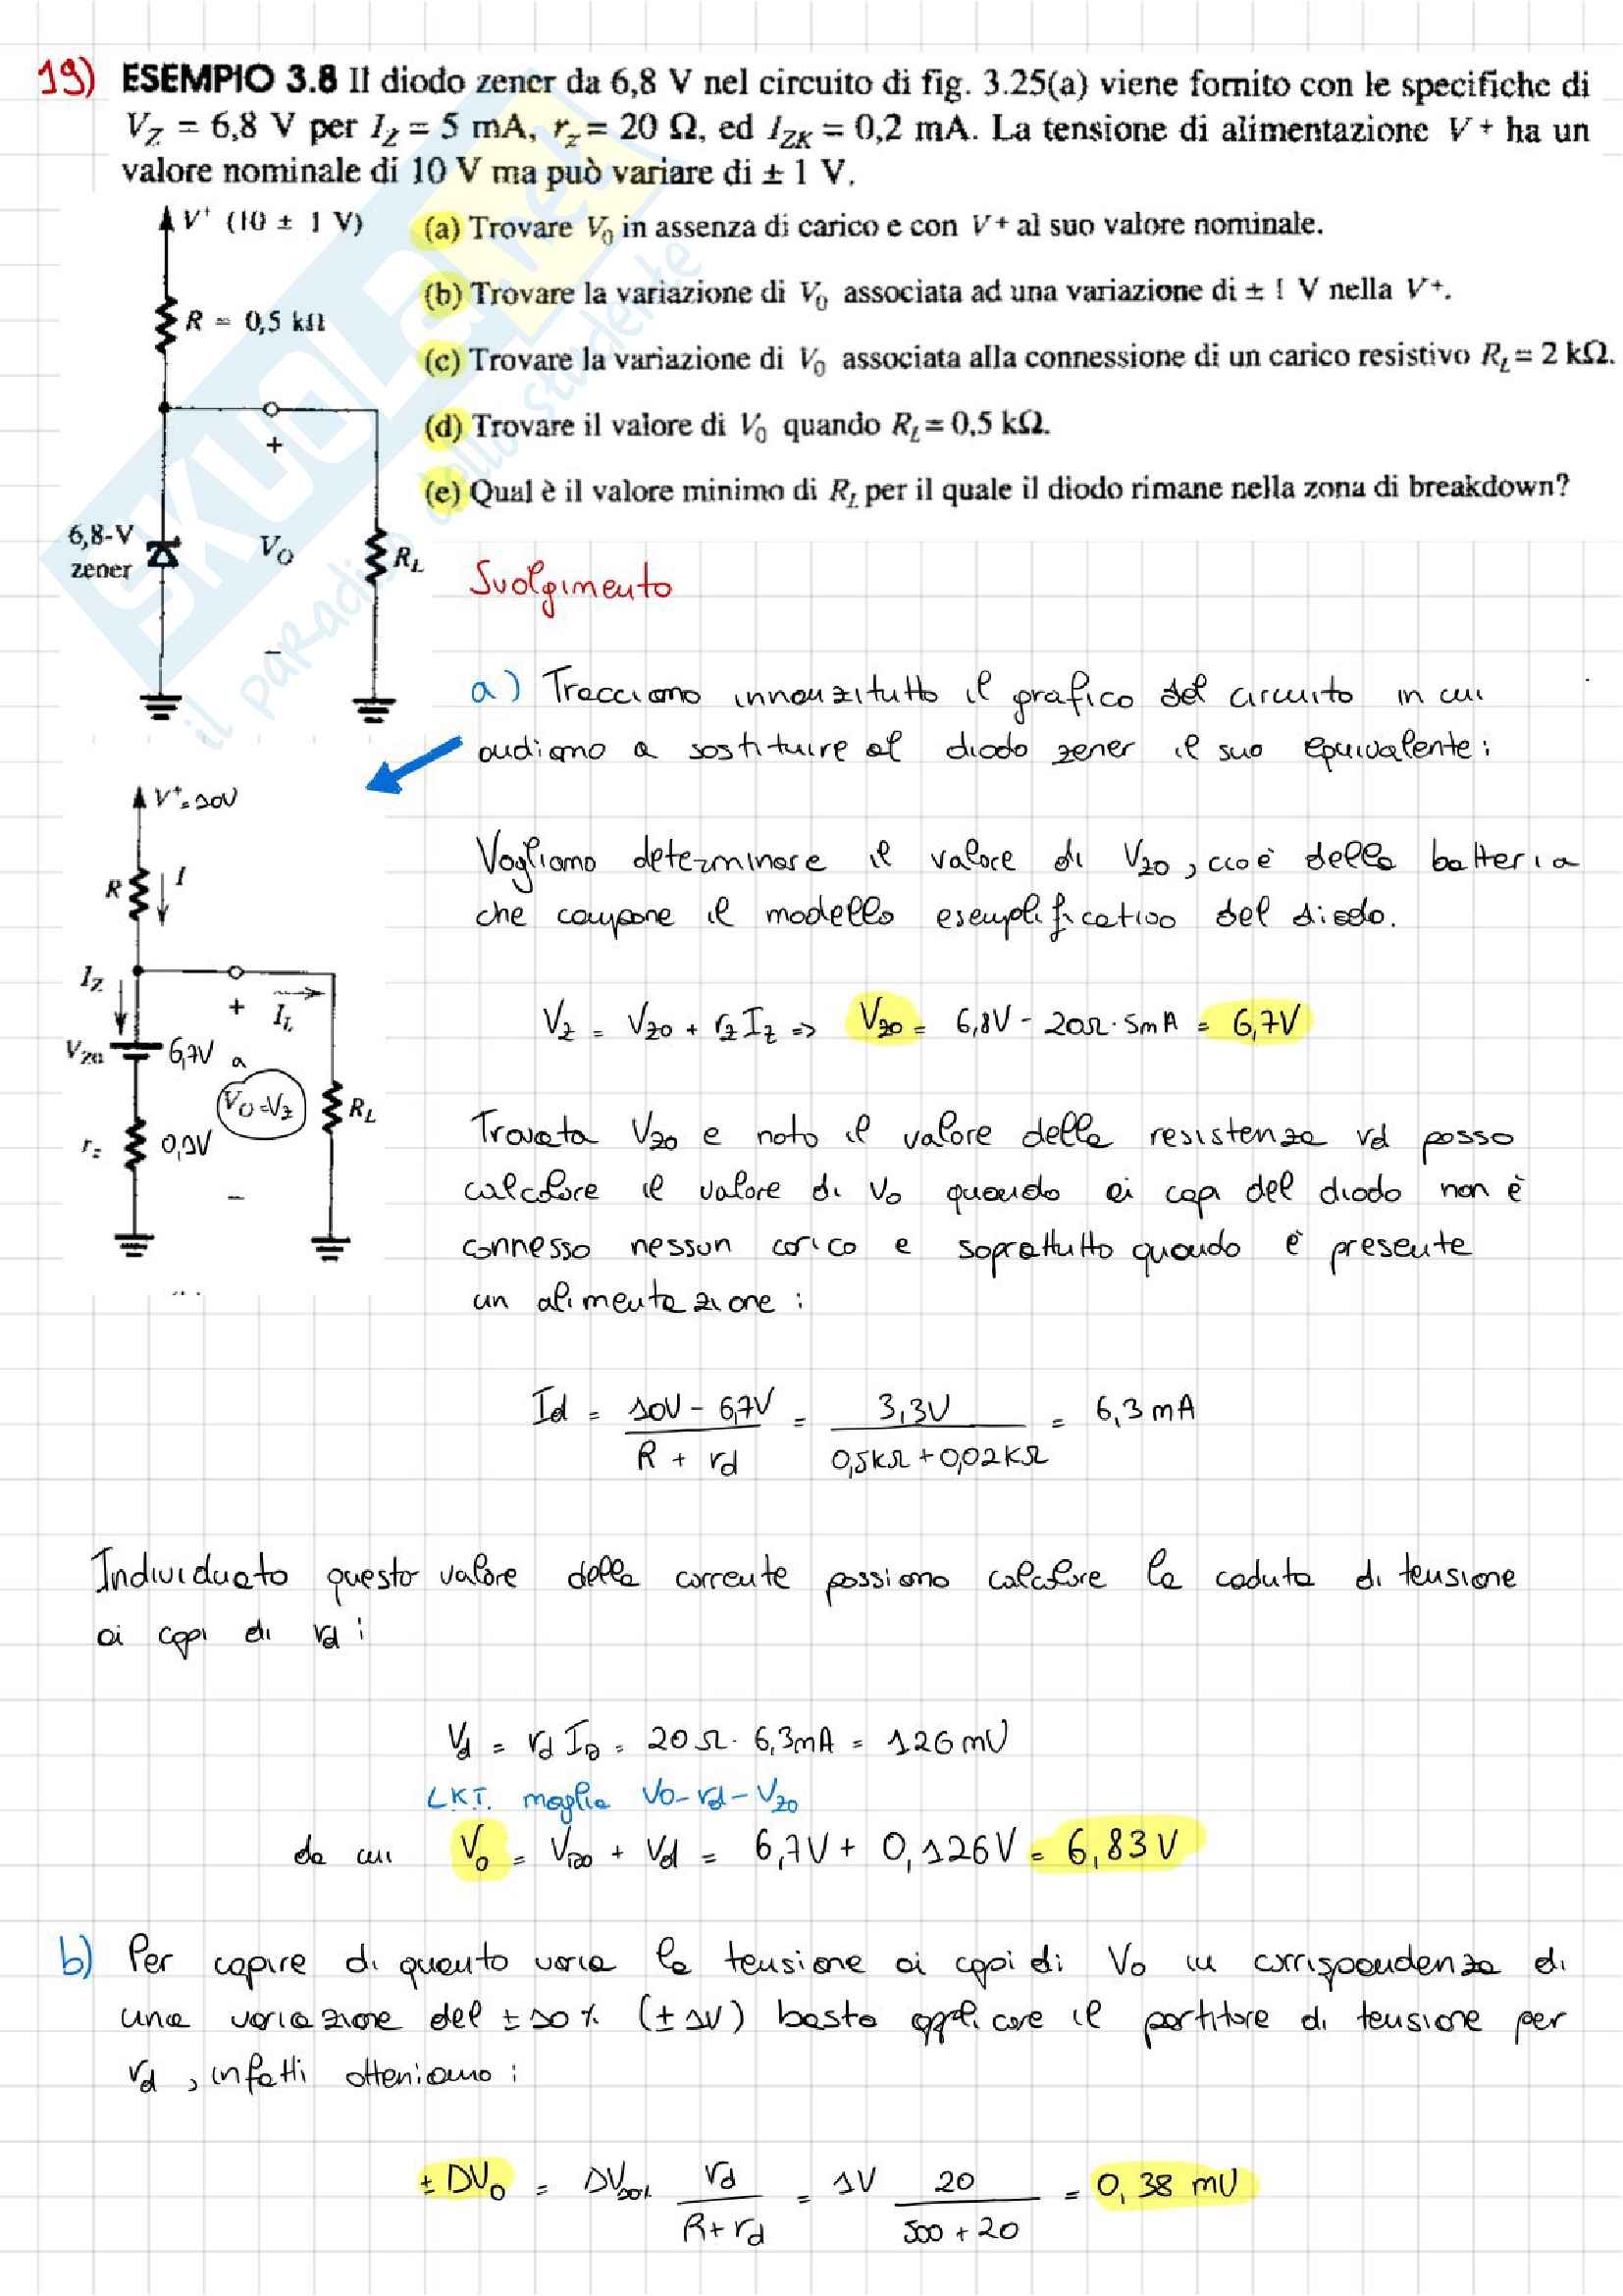 19) ESEMPIO 3.8 Il diodo zener da 6,8 V nel circuito di fig. 3.25(a) viene fornito con le specifiche di
V_Z = 6,8 V per I_Z = 5 mA, r_z = 20 Ω, ed I_ZK = 0,2 mA. La tensione di alimentazione V+ ha un
valore nominale di 10 V ma può variare di ± 1 V.
V+ (10 ± 1 V)
(a) Trovare V_0 in assenza di carico e con V+ al suo valore nominale.
(b) Trovare la variazione di V_0 associata ad una variazione di ± 1 V nella V+.
R = 0,5 kΩ
(c) Trovare la variazione di V_0 associata alla connessione di un carico resistivo R_L = 2 kΩ.
(d) Trovare il valore di V_0 quando R_L = 0,5 kΩ.
+
(e) Qual è il valore minimo di R_L per il quale il diodo rimane nella zona di breakdown?
6,8-V
zener
V_O
R_L
−
SKUOLA.net
il paradiso dello studente
Svolgimento
a) Tracciamo innanzitutto il grafico del circuito in cui
andiamo a sostituire al diodo zener il suo equivalente:
V+ = 10V
R
I
Vogliamo determinare il valore di V_Z0, cioè della batteria
che compone il modello esemplificativo del diodo.
I_Z
+
I_L
V_Z0
6,7V
V_O = V_Z
R_L
r_z
0,1V
−
V_Z = V_Z0 + r_Z I_Z => V_Z0 = 6,8V - 20Ω · 5mA = 6,7V
Trovata V_Z0 e noto il valore della resistenza rd posso
calcolare il valore di Vo quando ai capi del diodo non è
connesso nessun carico e soprattutto quando è presente
un alimentazione:
Id = 10V - 6,7V / R + rd = 3,3V / 0,5kΩ + 0,02kΩ = 6,3 mA
Individuato questo valore della corrente possiamo calcolare la caduta di tensione
ai capi di rd:
Vd = rd I_D = 20Ω · 6,3mA = 126 mV
L.K.T. maglia Vo - rd - V_Z0
da cui V_0 = V_Z0 + Vd = 6,7V + 0,126V = 6,83 V
b) Per capire di quanto varia la tensione ai capi di Vo in corrispondenza di
una variazione del ±10% (±1V) basta applicare il partitore di tensione per
rd, infatti otteniamo:
± DV_0 = DV_10% rd / R + rd = 1V 20 / 500 + 20 = 0,38 mV